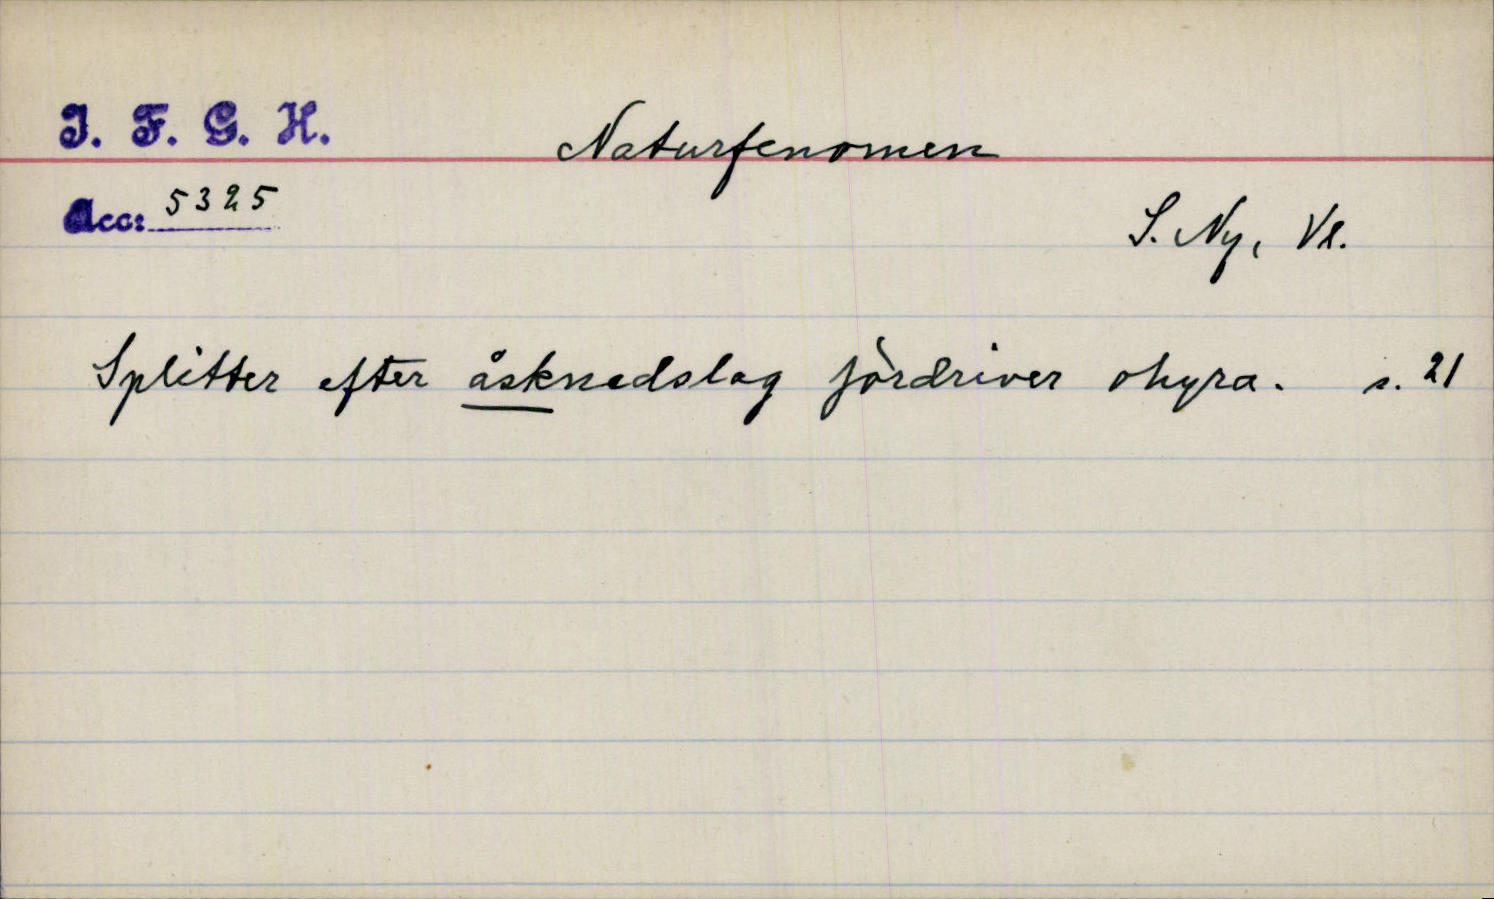 I. F. G. H.
Naturfenomen
Acc: 5325
S. Ny, Vl.
Splitter efter åsknedslag fördriver ohyra. s. 21